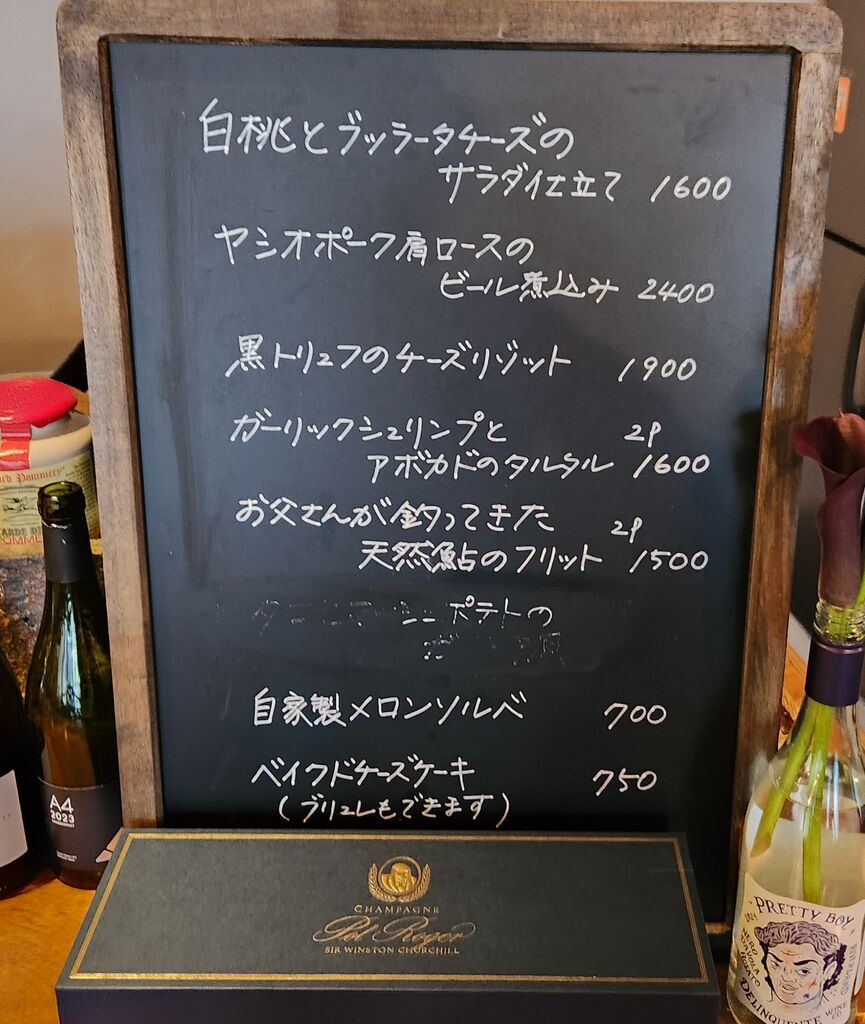 白桃とブッラータチーズの
サラダ仕立て 1600
ヤシオポーク肩ロースの
ビール煮込み 2400
黒トリュフのチーズリゾット 1900
ガーリックシュリンプと 2P
アボカドのタルタル 1600
お父さんが釣ってきた 2P
天然鮎のフリット 1500
ポテトの
自家製メロンソルベ 700
ベイクドチーズケーキ 750
(ブリュレもできます)
A4
2023
CHAMPAGNE
Pol Roger
SIR WINSTON CHURCHILL
PRETTY BOY
NERO
DELINQUENTE
WINE
Pommery